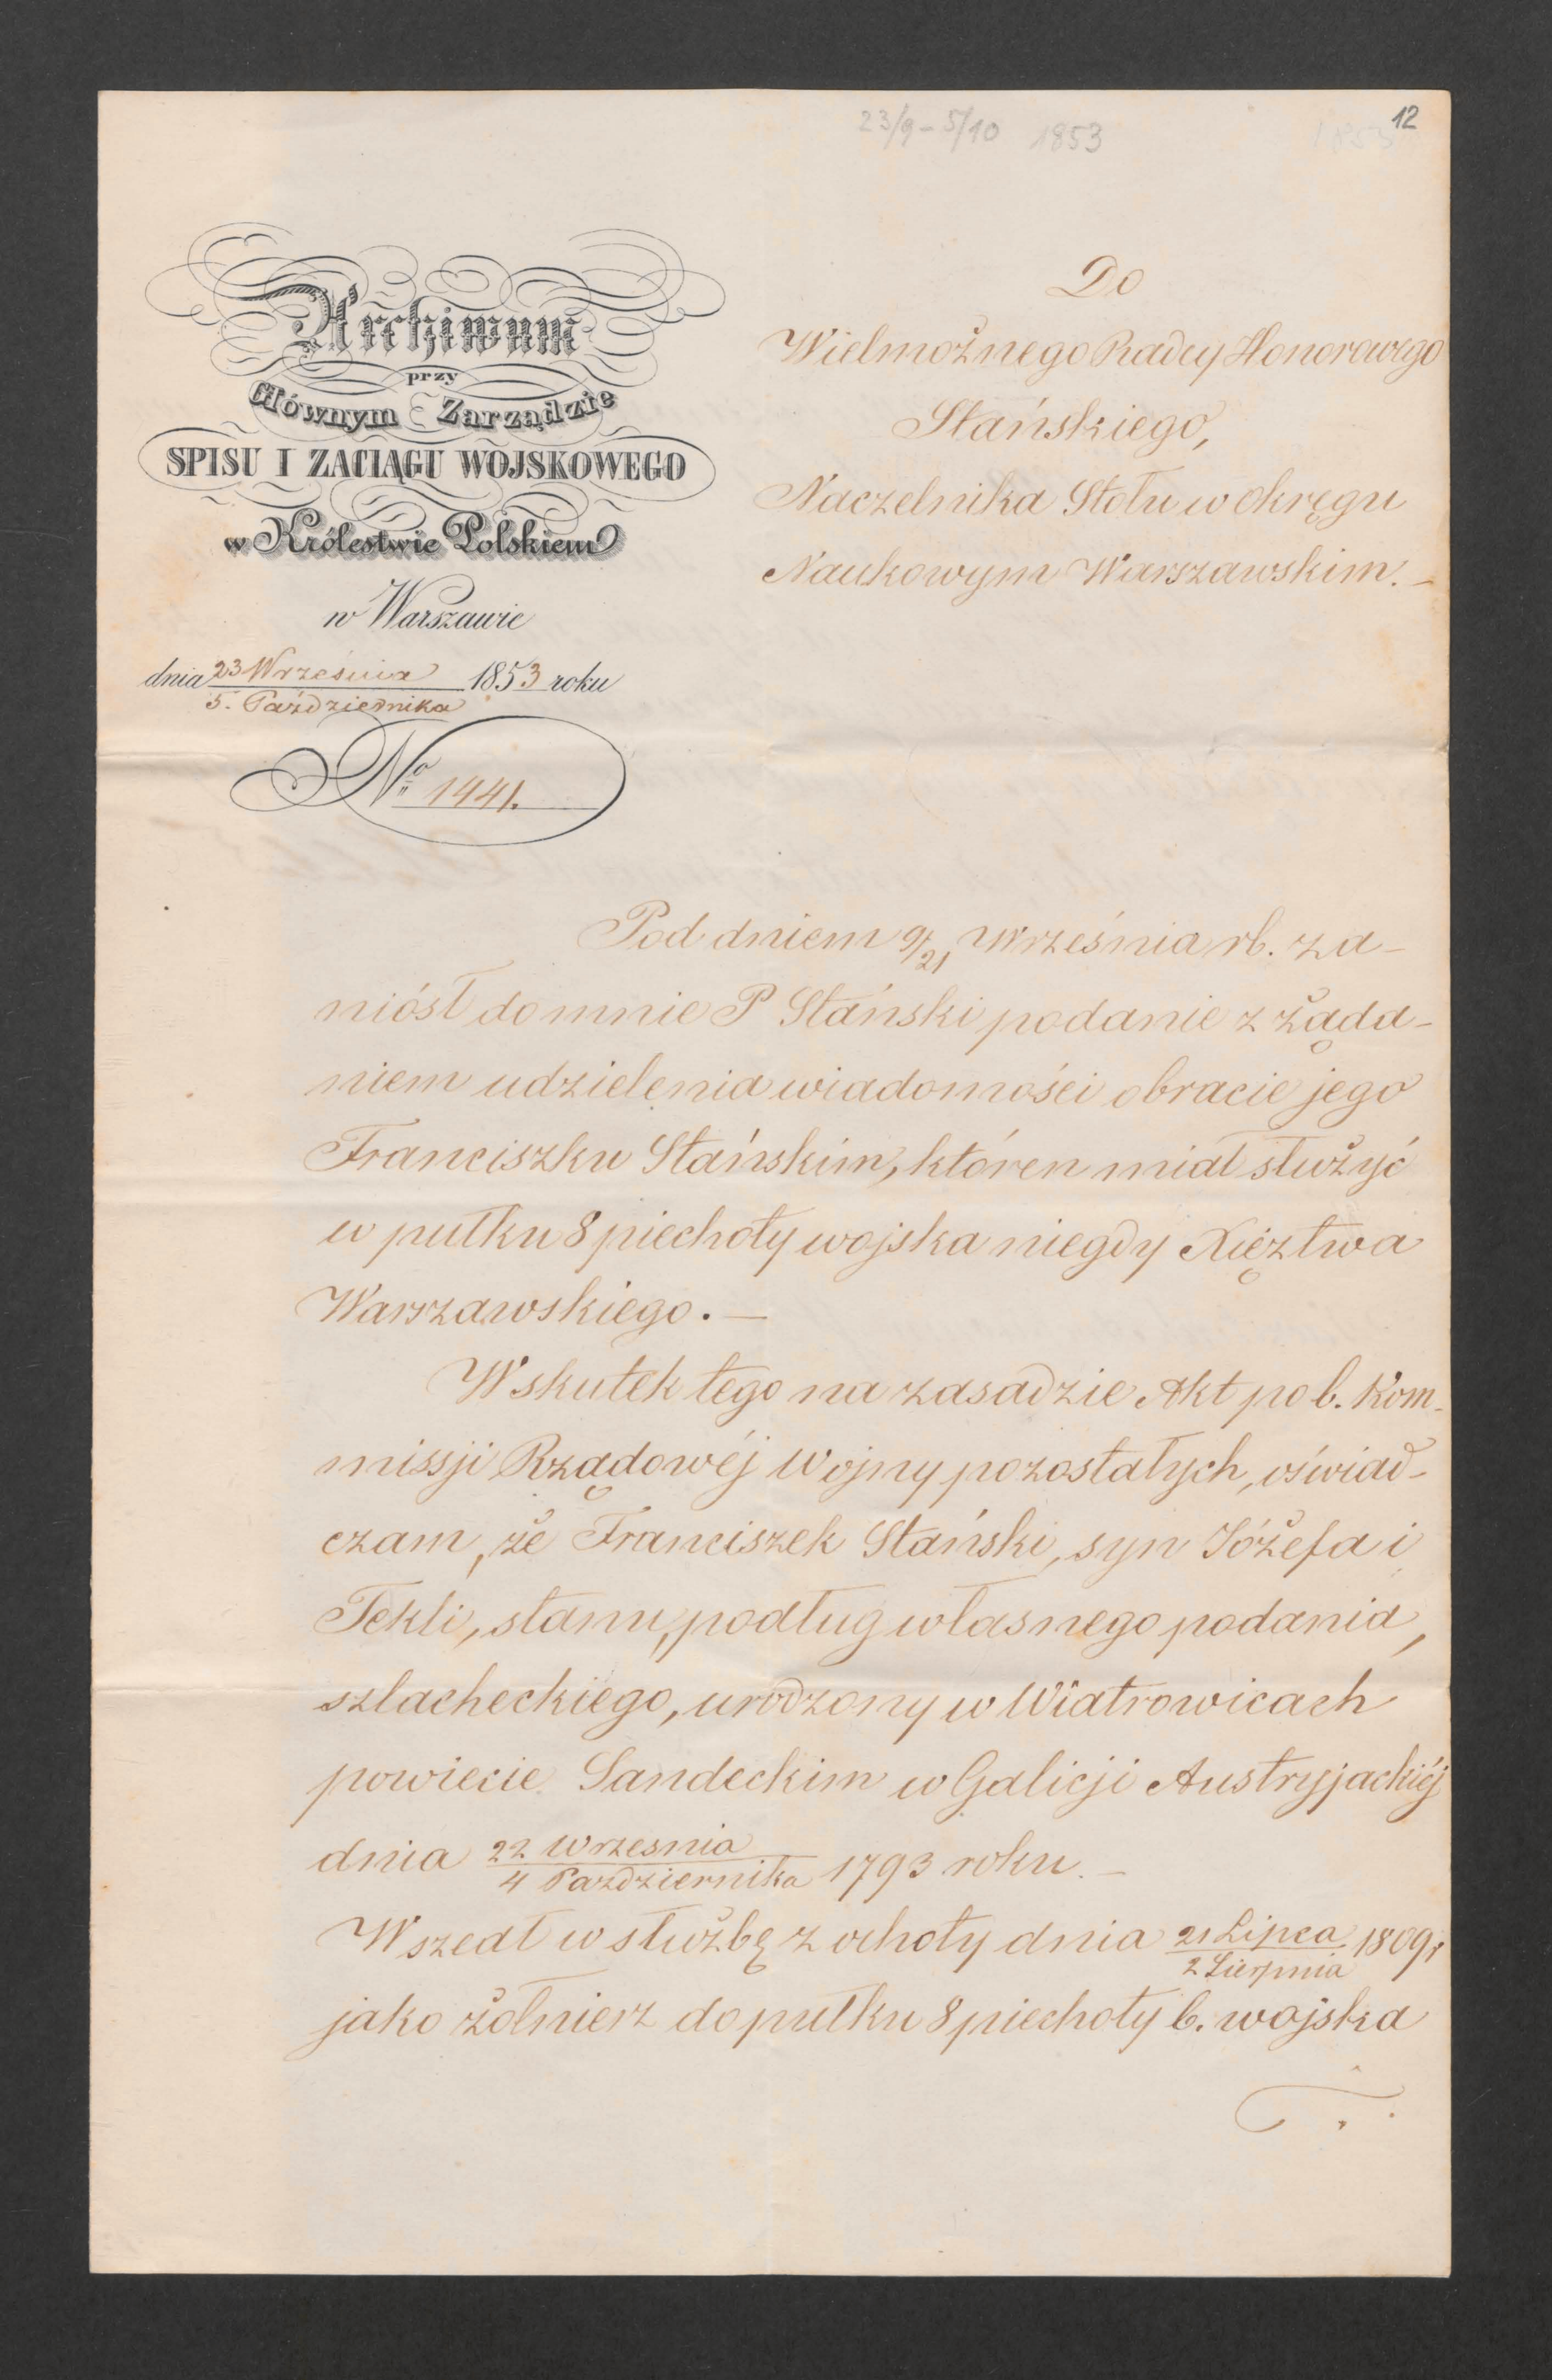 23/9 - 5/10 1853
12
Archiwum
przy
Głównym Zarządzie
SPISU I ZACIĄGU WOJSKOWEGO
w Królestwie Polskiem
w Warszawie
dnia 23 Września / 5. Października 1853 roku
No 1441.
Do
Wielmożnego Radcy Honorowego
Stańskiego,
Naczelnika Stołu w Okręgu
Naukowym Warszawskim. —
Pod dniem 9/21 Września rb. za-
niósł do mnie P Stański podanie z żąda-
niem udzielenia wiadomości o bracie jego
Franciszku Stańskim, któren miał służyć
w pułku 8 piechoty wojska niegdy Xięztwa
Warszawskiego. —
W skutek tego na zasadzie Akt po b. Kom-
missji Rządowéj Wojny pozostałych, oświad-
czam, że Franciszek Stański, syn Józefa i
Tekli, stanu, podług własnego podania,
szlacheckiego, urodzony w Wiatrowicach
powiecie Sandeckim w Galicji Austryjackiéj
dnia 22 Wrzesnia / 4 Pazdziernika 1793 roku. —
Wszedł w służbę z ochoty dnia 21 Lipca / 2 Sierpnia 1809 r
jako żołnierz do pułku 8 piechoty b. wojska